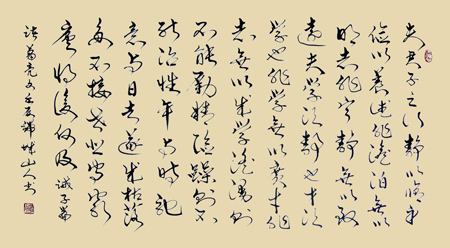 夫君子之行静以修身
俭以养德非澹泊无以
明志非宁静无以致
远夫学须静也才须
学也非学无以广才非
志无以成学淫漫则
不能励精险躁则不
能治性年与时驰
意与日去遂成枯落
多不接世悲守穷
庐将复何及 诫子书
诸葛亮文壬辰山人书